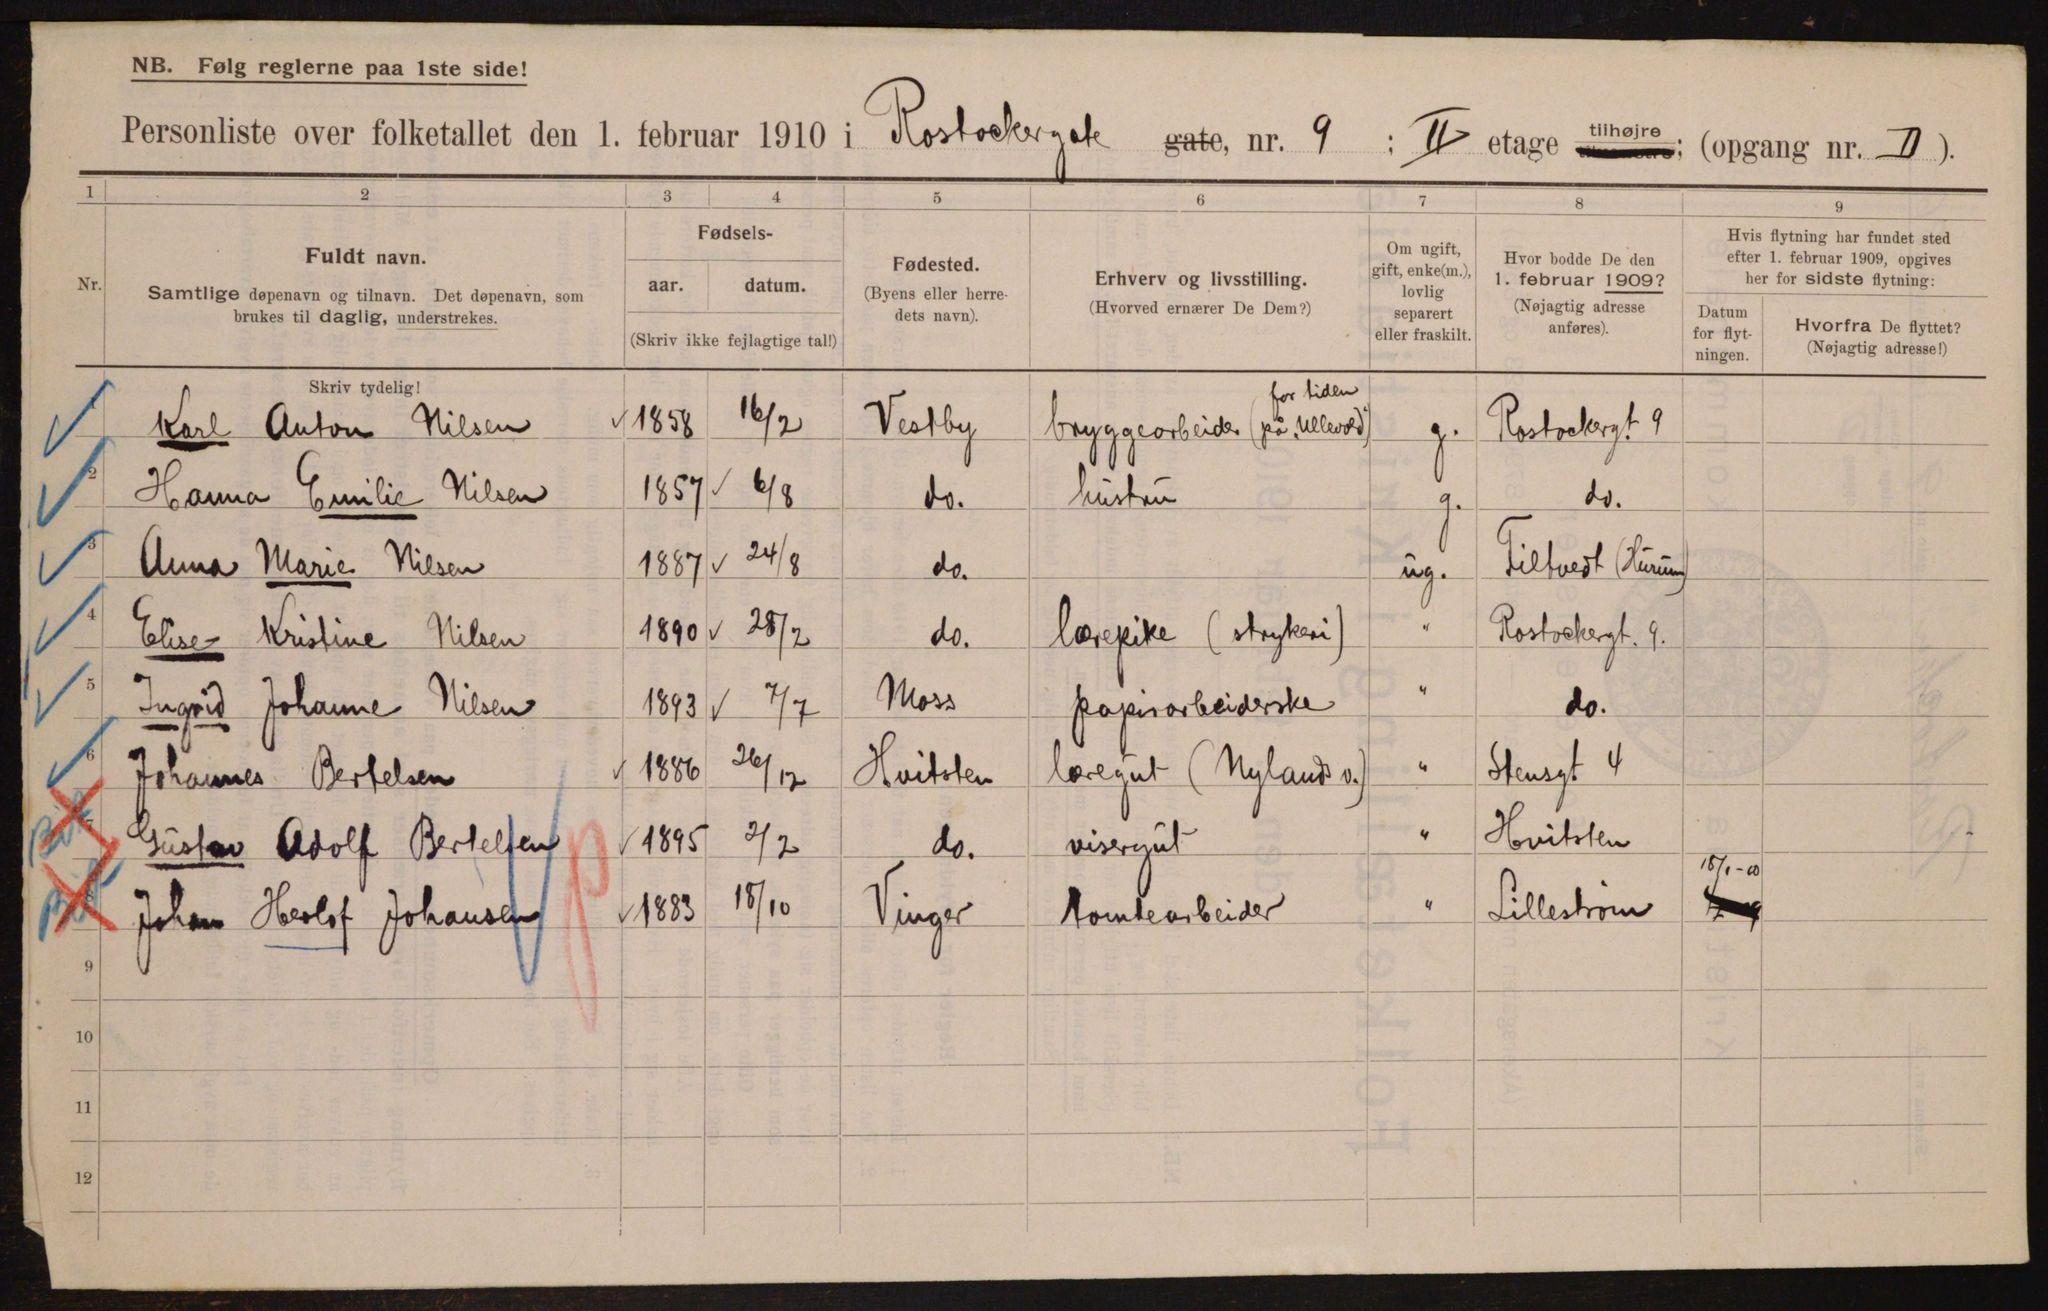 NB. Følg reglerne paa 1ste side!
Personliste over folketallet den 1. februar 1910 i Rostockergate gate, nr. 9 ; II etage tilhøjre; (opgang nr. II ).
1 2 3 4 5 6 7 8 9
Nr.
Fuldt navn.
Samtlige døpenavn og tilnavn. Det døpenavn, som
brukes til daglig, understrekes.
Fødsels-
aar. datum.
(Skriv ikke fejlagtige tal!)
Fødested.
(Byens eller herre-
dets navn).
Erhverv og livsstilling.
(Hvorved ernærer De Dem?)
Om ugift,
gift, enke(m.),
lovlig
separert
eller fraskilt.
Hvor bodde De den
1. februar 1909?
(Nøjagtig adresse
anføres).
Hvis flytning har fundet sted
efter 1. februar 1909, opgives
her for sidste flytning:
Datum
for flyt-
ningen.
Hvorfra De flyttet?
(Nøjagtig adresse!)
Skriv tydelig!
for tiden
1 Karl Anton Nilsen 1858 16/2 Vestby bryggearbeider (på „Ullevold“) g. Rostockergt. 9
2 Hanna Emilie Nilsen 1857 6/8 do. hustru g. do.
3 Anna Marie Nilsen 1887 24/8 do. ug. Filtvedt (Hurum)
4 Elise Kristine Nilsen 1890 28/2 do. lærepike (strykeri) " Rostockergt. 9.
5 Ingrid Johanne Nilsen 1893 7/7 Moss papirarbeiderske " do.
6 Johannes Bertelsen 1886 26/12 Hvitsten læregut (Nylands v.) " Stensgt 4
7 Gustav Adolf Bertelsen 1895 2/2 do. visergut " Hvitsten
8 Johan Herlof Johansen 1883 18/10 Vinger tomtearbeider " Lillestrøm
9
10
11
12